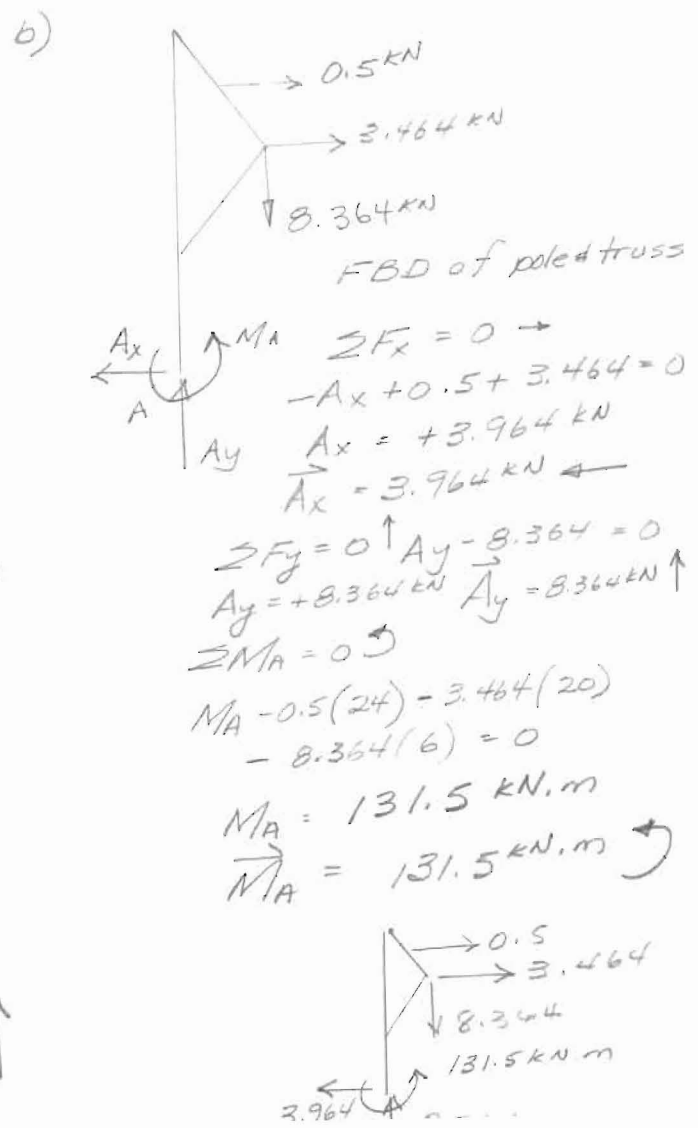 b)
0.5 kN
3.464 kN
8.364 kN
FBD of pole & truss
Ax
MA
A
Ay
ΣFx = 0 →
-Ax + 0.5 + 3.464 = 0
Ax = +3.964 kN
Ax = 3.964 kN ←
ΣFy = 0 ↑ Ay - 8.364 = 0
Ay = +8.364 kN Ay = 8.364 kN ↑
ΣMA = 0 ↺
MA - 0.5(24) - 3.464(20)
- 8.364(6) = 0
MA = 131.5 kN.m
MA = 131.5 kN.m ↺
0.5
3.464
8.364
131.5 kN m
3.964
A